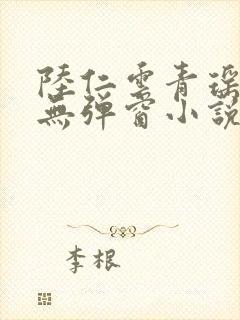 陸仁雲青瑶
無彈窗小説
李根